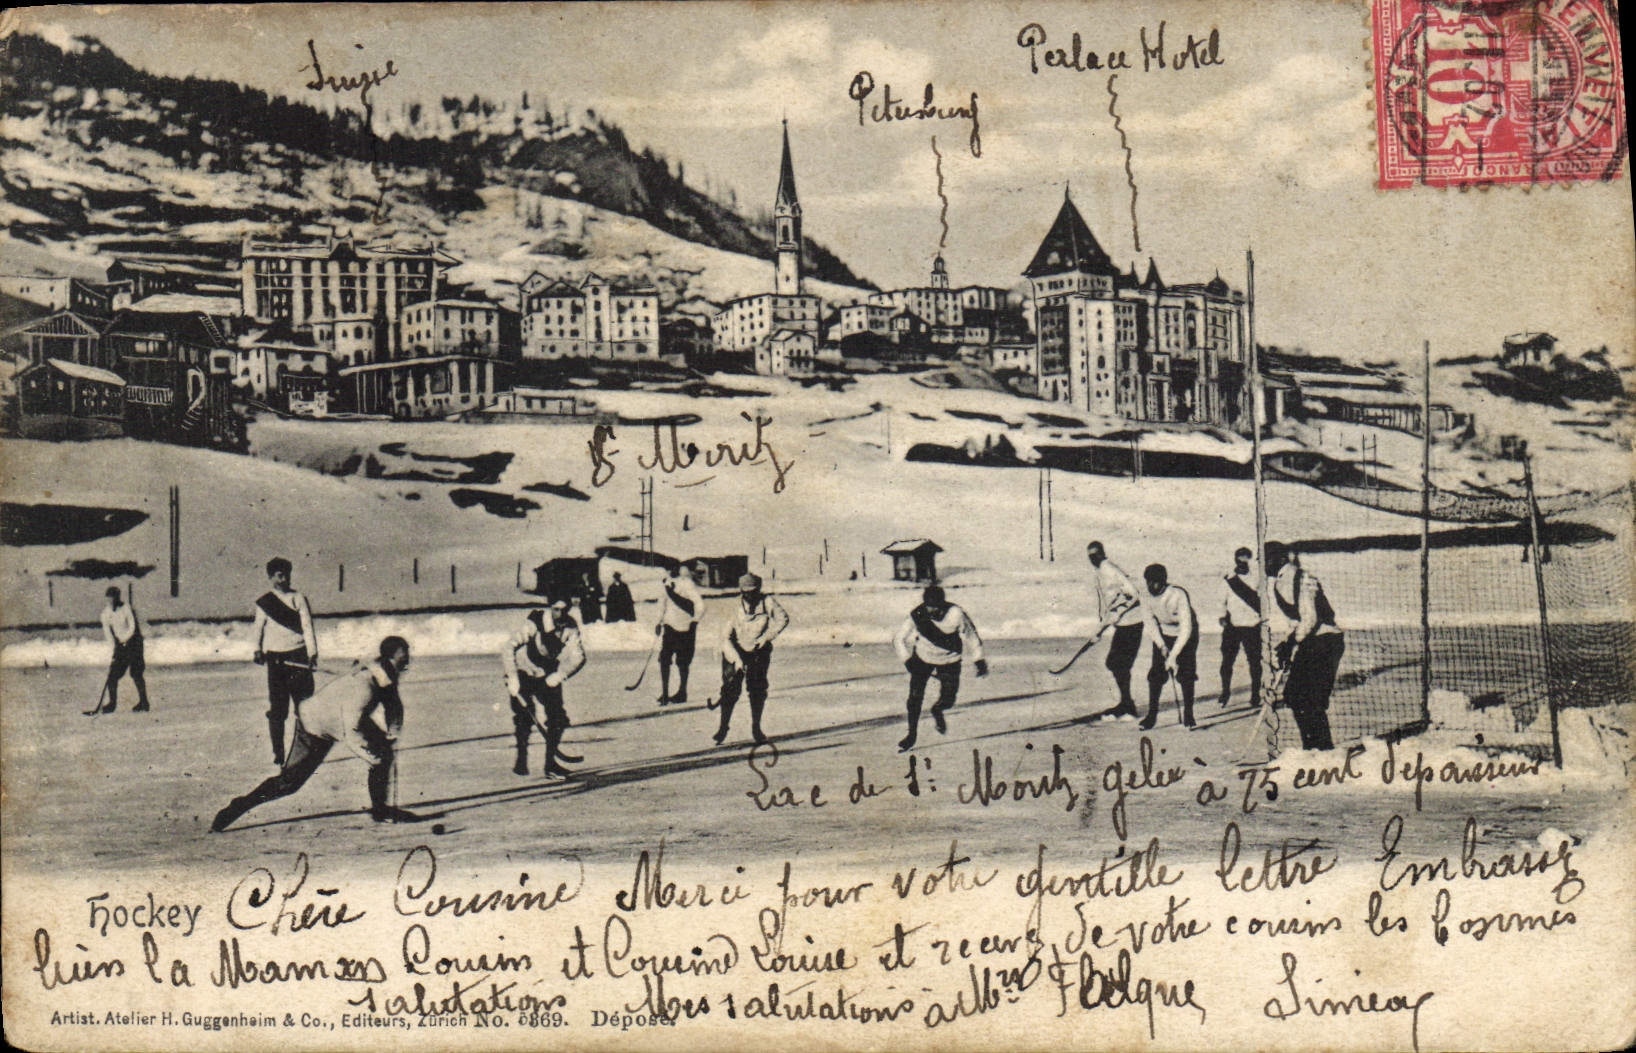 Suisse
Petersburg
Perlace Hotel
10
FRANCO
St Moritz
Lac de St Moritz gelée à 75 cent d'épaisseur
Hockey
Chère Cousine Merci pour votre gentille lettre Embrassez
bien la Maman Cousin et Cousine Louise et recevez de votre cousin les bonnes
salutations Mes salutations à Mr
Artist. Atelier H. Guggenheim & Co., Editeurs, Zürich No. 5369. Déposé.